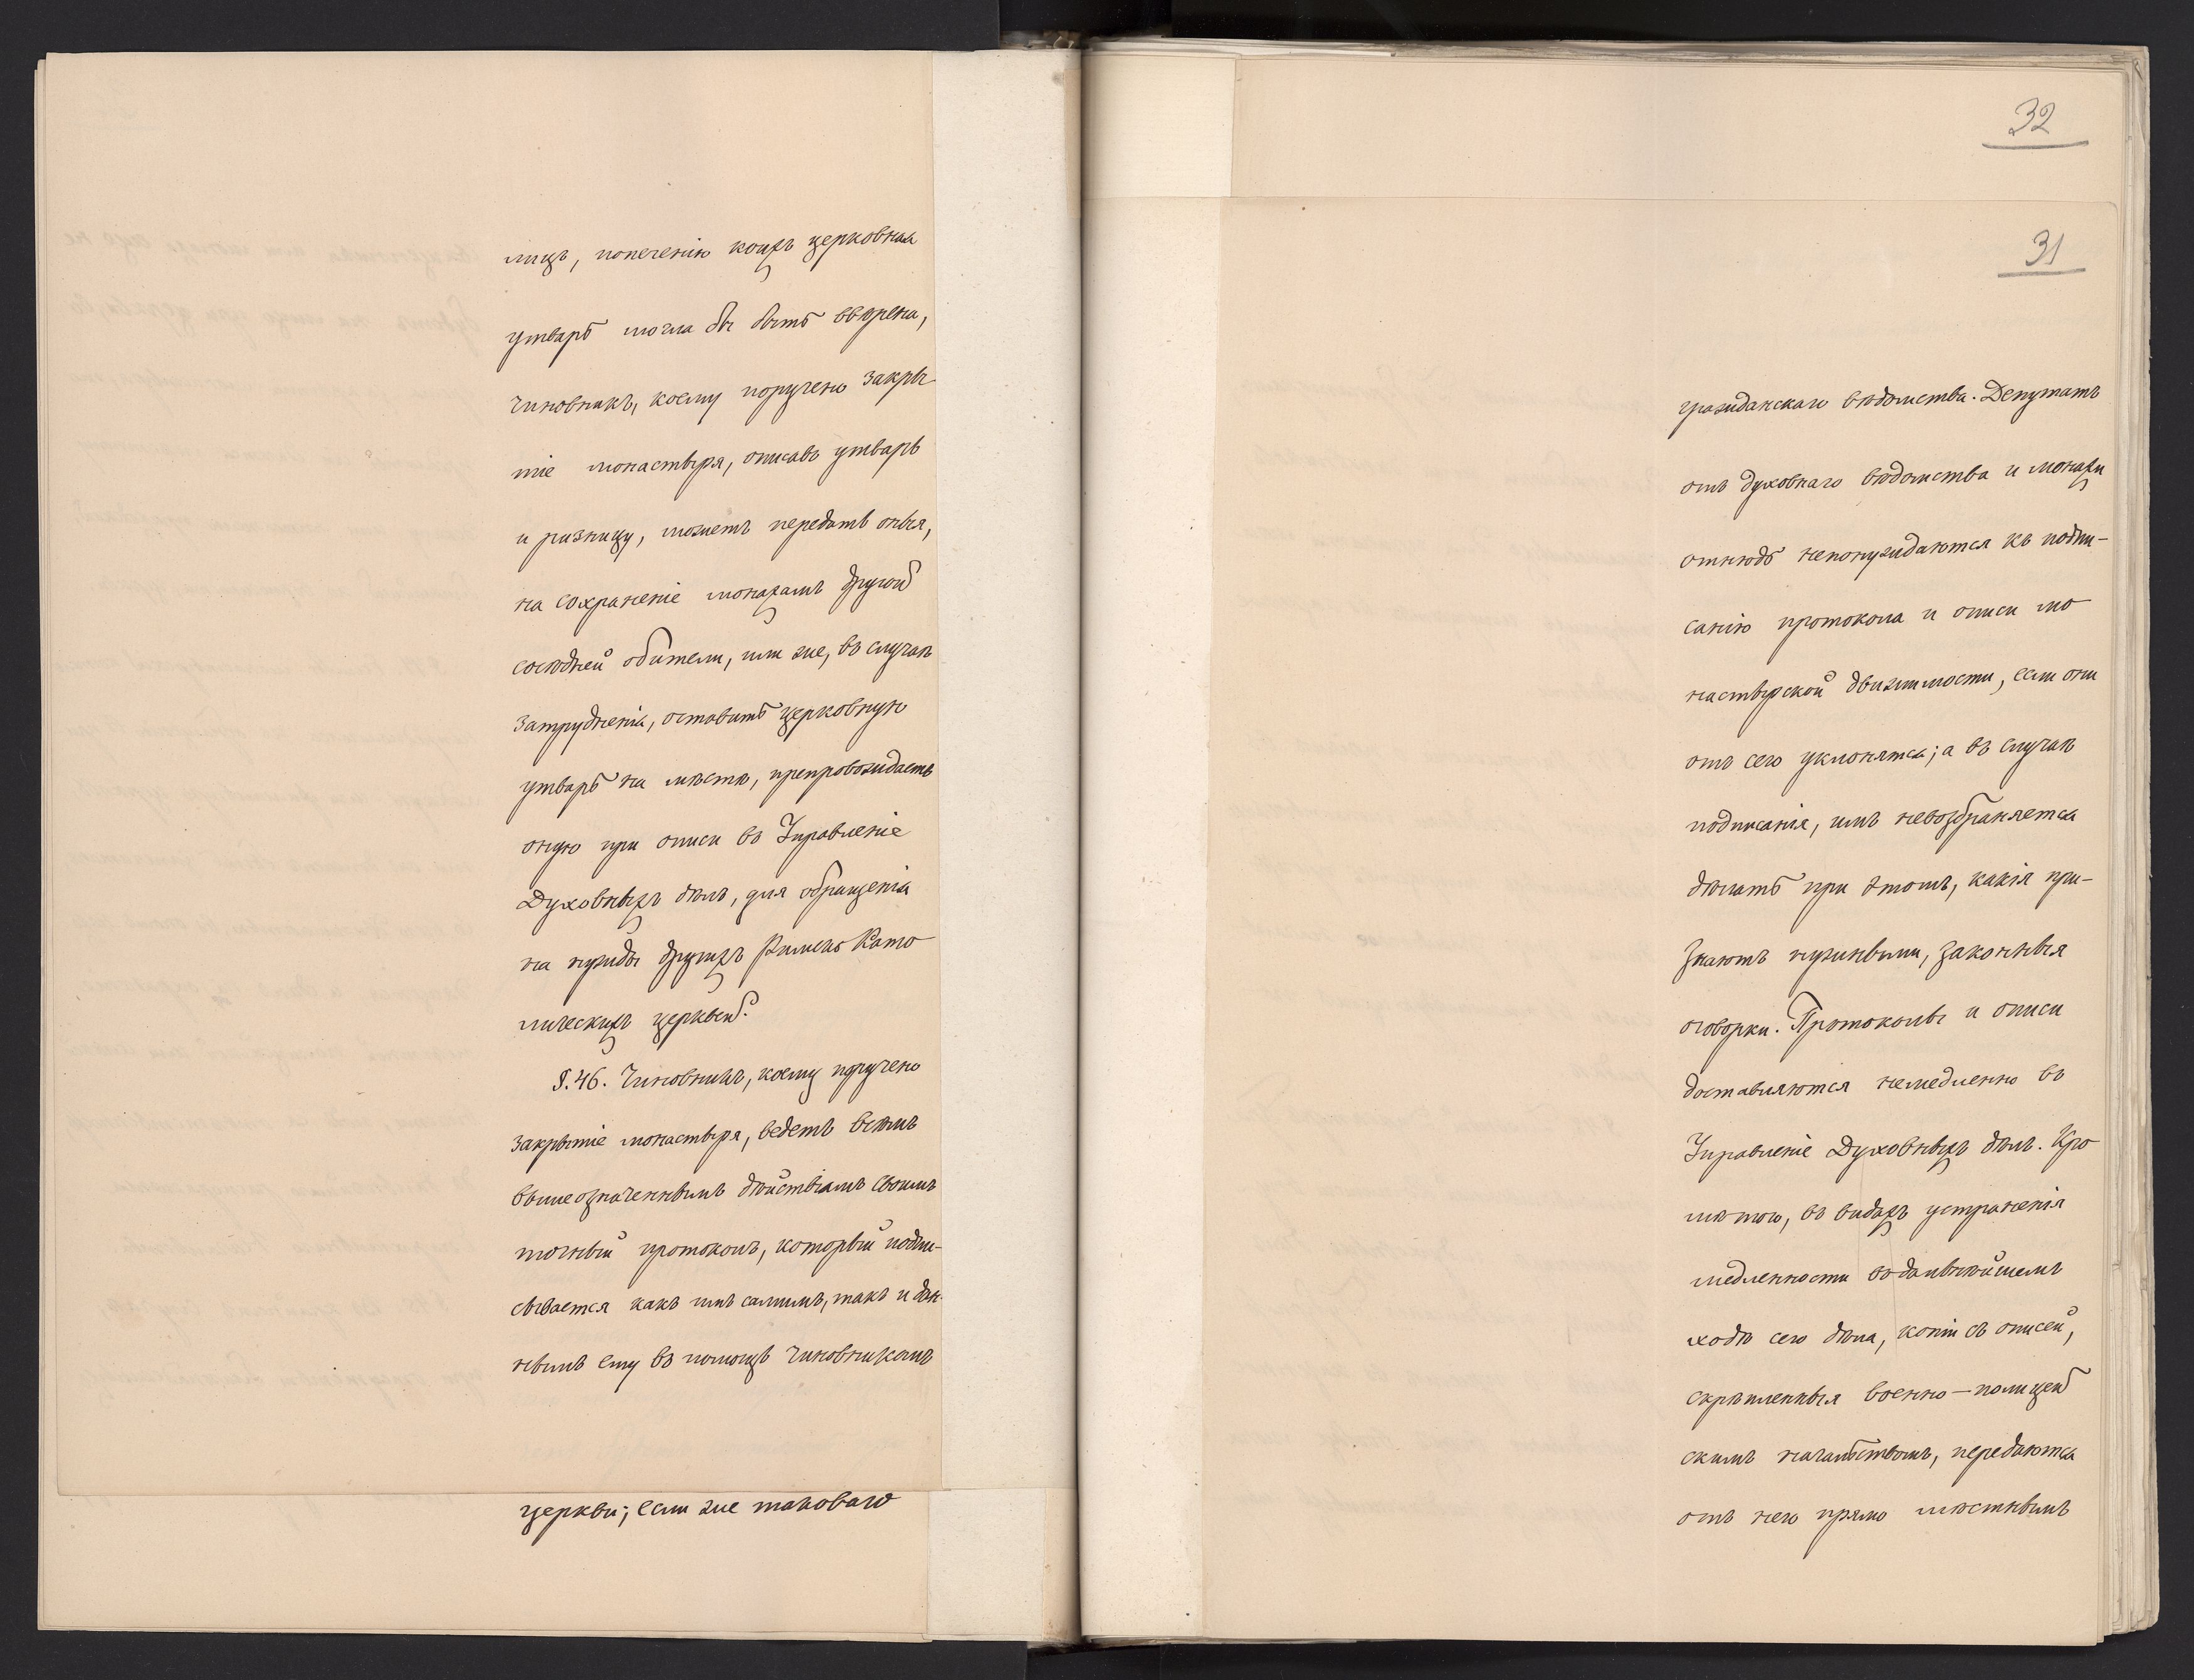 лицъ, попеченію коихъ церковная
утварь могла бы быть ввѣрена,
чиновникъ, коему поручено закры
тіе монастыря, описавъ утварь
и ризницу, можетъ передать оныя,
на сохраненіе монахамъ другой
сосѣдней обители, или же, въ случаѣ
затрудненія, оставить церковную
утварь на мѣстѣ, препровождаетъ
оную при описи въ Управленіе
Духовныхъ дѣлъ, для обращенія
на нужды другихъ Римско Като
лическихъ церквей.
§. 46. Чиновникъ, коему поручено
закрытіе монастыря, ведетъ всѣмъ
вышеозначеннымъ дѣйствіямъ своимъ
точный протоколъ, который подпи-
сывается какъ имъ самимъ, такъ и дан-
нымъ ему въ помощь чиновникомъ
церкви; если же таковаго
32
31
гражданскаго вѣдомства. Депутатъ
отъ духовнаго вѣдомства и монахи
отнюдь непонуждаются къ подпи-
санію протокола и описи мо
настырской движимости, если они
отъ сего уклонятся; а въ случаѣ
подписанія, имъ невозбраняется
дѣлать при этомъ, какія при-
знаютъ нужными, законныя
оговорки. Протоколы и описи
доставляются немедленно въ
Управленіе Духовныхъ дѣлъ. Кро
мѣ того, въ видахъ устраненія
медленности въ дальнѣйшемъ
ходѣ сего дѣла, копіи съ описей,
скрѣпленныя военно-полицей
скимъ начальствомъ, передаются
отъ него прямо мѣстнымъ